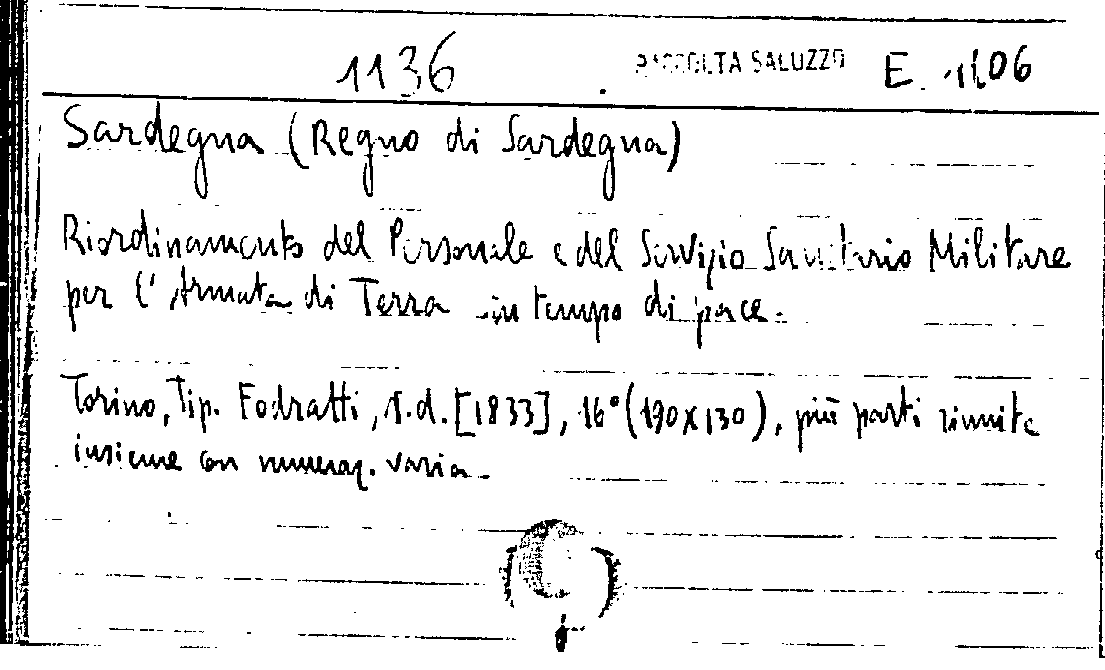 1136 RACCOLTA SALUZZO E. 1106
Sardegna (Regno di Sardegna)
Riordinamento del Personale e del Servizio Sanitario Militare
per l'Armata di Terra in tempo di pace.
Torino, Tip. Fodratti, s.d. [1833], 16° (190x130), più parti riunite
insieme con numeraz. varia.